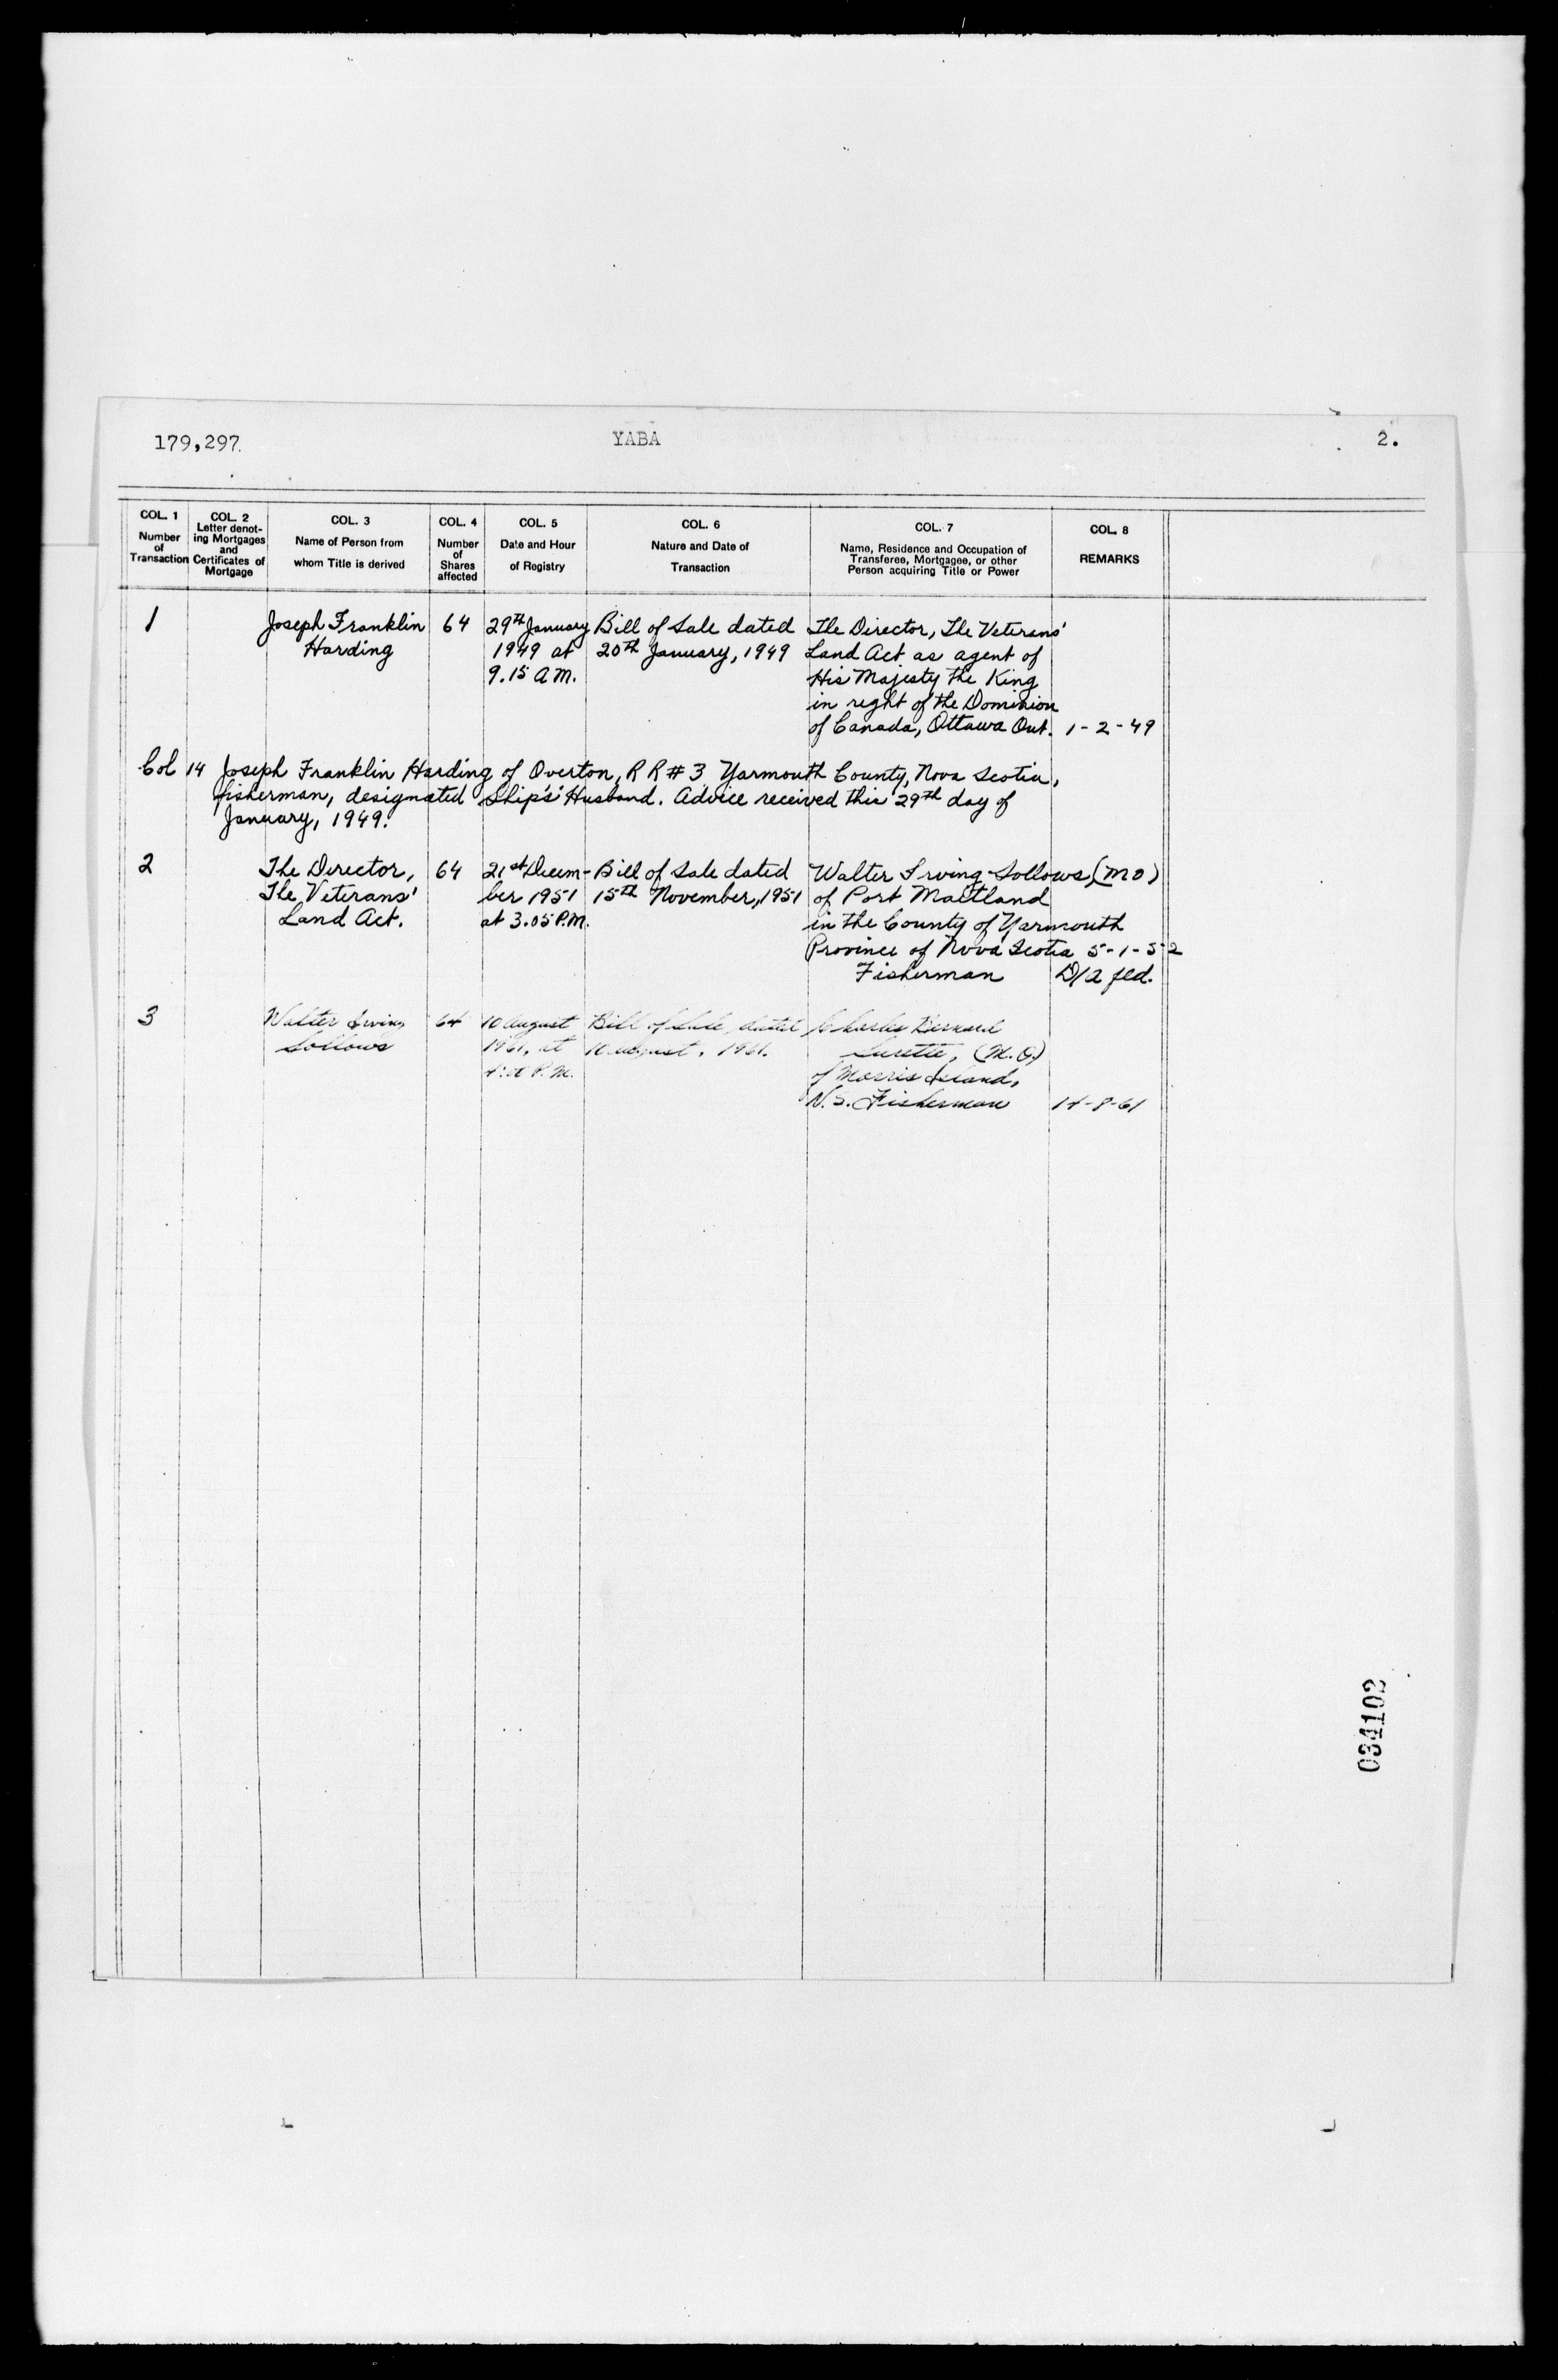 179,297. YABA 2.
COL. 1 Number of Transaction
COL. 2 Letter denoting Mortgages and Certificates of Mortgage
COL. 3 Name of Person from whom Title is derived
COL. 4 Number of Shares affected
COL. 5 Date and Hour of Registry
COL. 6 Nature and Date of Transaction
COL. 7 Name, Residence and Occupation of Transferee, Mortgagee, or other Person acquiring Title or Power
COL. 8 REMARKS
1 Joseph Franklin 64 29th January Bill of Sale dated The Director, The Veterans'
Harding 1949 at 20th January, 1949 Land Act as agent of
9.15 A.M. His Majesty the King
in right of the Dominion
of Canada, Ottawa Ont. 1-2-49
Col 14 Joseph Franklin Harding of Overton, R R # 3 Yarmouth County, Nova Scotia,
fisherman, designated "Ship's" Husband. Advice received this 29th day of
January, 1949.
2 The Director, 64 21st Decem- Bill of Sale dated Walter Irving Sollows, (MO)
The Veterans' ber 1951 15th November, 1951 of Port Maitland
Land Act. at 3.05 P.M. in the County of Yarmouth
Province of Nova Scotia 5-1-52
Fisherman D/A fld.
3 Walter Irving 64 10 August Bill of Sale dated Charles Bernard
Sollows 1961, at 10 August, 1961. Surette, (M.O.)
P.M. of Morris Island,
N.S. Fisherman 14-8-61
034102